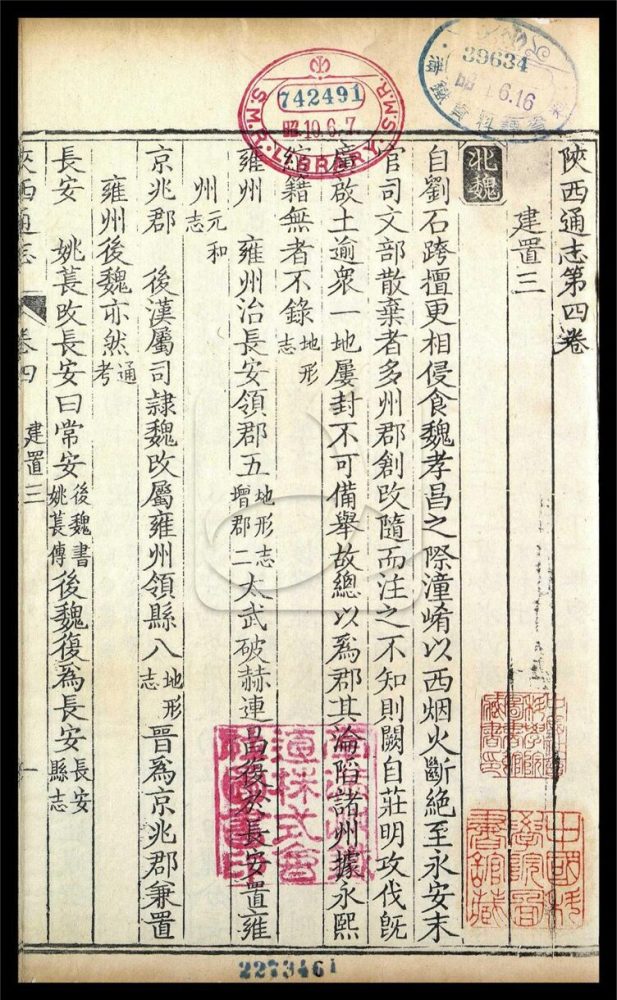 陝西通志第四卷
建置三
北魏
自劉石跨擅更相侵食魏孝昌之際潼崤以西烟火斷絶至永安末
官司文部散棄者多州郡創改隨而注之不知則闕自莊明攻伐旣
廣啟土逾衆一地屢封不可備舉故總以爲郡其淪陷諸州據永熙
綰籍無者不錄地形志
雍州 雍州治長安領郡五地形志增郡二太武破赫連昌復於長安置雍
州元和志
京兆郡 後漢屬司隷魏改屬雍州領縣八地形志晉爲京兆郡兼置
雍州後魏亦然通考
長安 姚萇改長安曰常安後魏書姚萇傳後魏復爲長安長安縣志
陝西通志 卷四 建置三 一
S.M.R. LIBRARY S.M.R.
742491
昭.10.6.7.
39634
昭 6.16
中國科學院圖書館藏
2273461